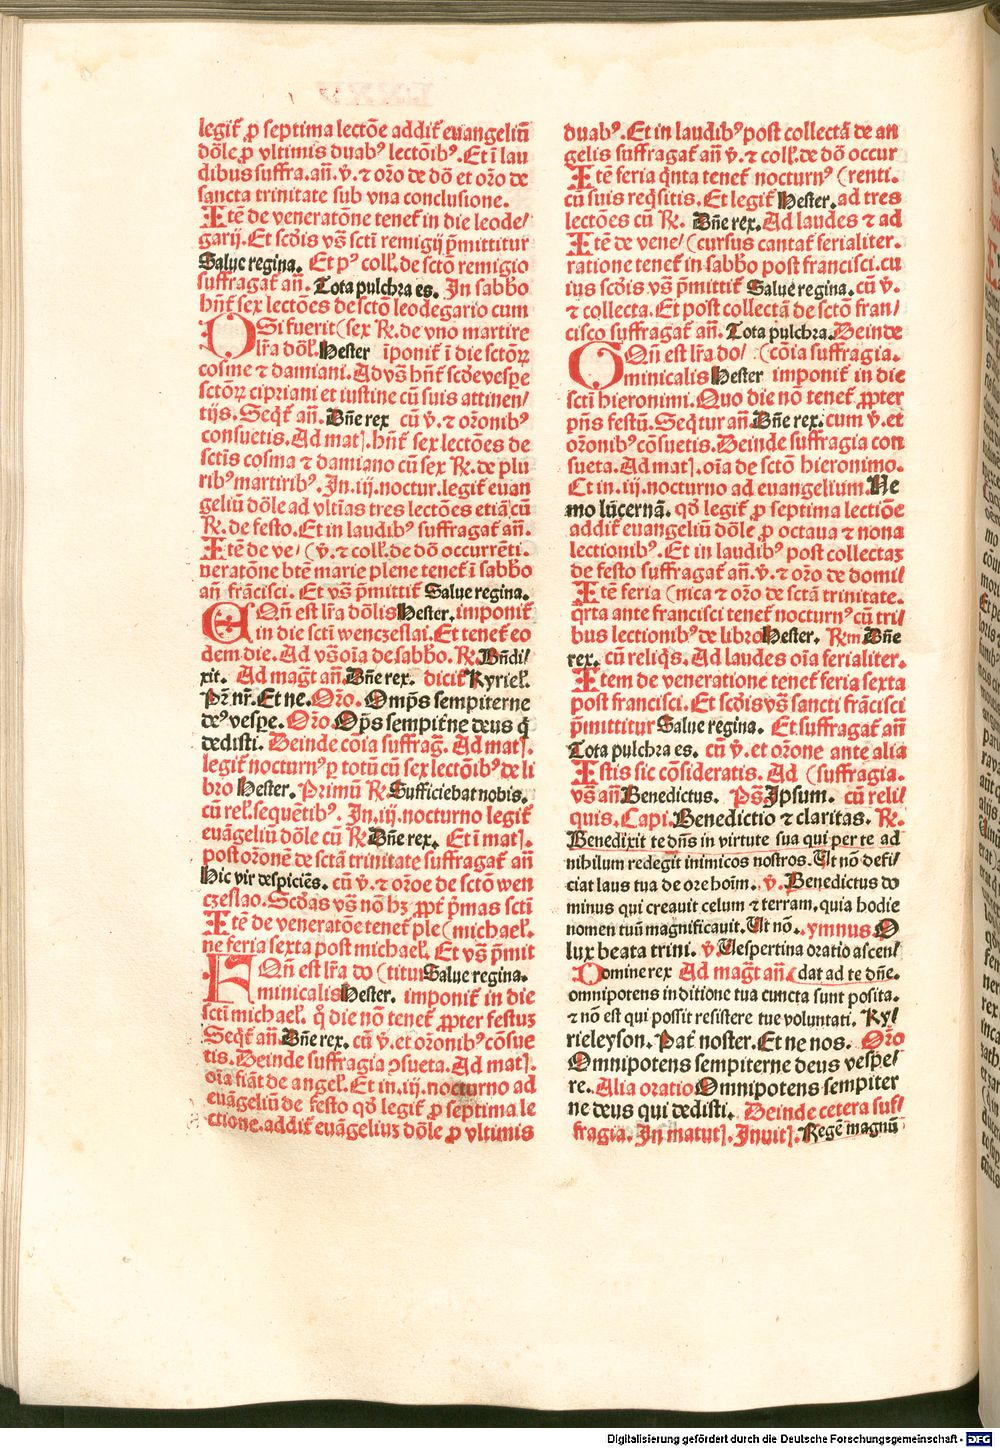 legit̄ ꝓ septima lectōe addit̄ euangeliū
dōle ꝓ vltimis duabꝰ lectōibꝰ. Et ī lau
dibus suffra. an̄. v̄. ⁊ oro̅ de dō et oro̅ de
sancta trinitate sub vna conclusione.
Itē de veneratōne tenet̄ in die leode/
garij. Et scd̄is vs̄ scti̅ remigij p̄mittitur
Salue regina. Et pꝰ coll̄. de sctō remigio
suffragat̄ an̄. Tota pulchra es. In sabb̄o
hn̄t sex lectōes de sctō leodegario cum
O Si fuerit (sex R̄. de vno martire
lr̄a dōl̄. Hester īponit̄ ī die sctōꝝ
cosme ⁊ damiani. Ad vs̄ hn̄t scd̄e vesꝑe
sctōꝝ cipriani et iustine cū suis attinen/
tijs. Seqt̄ an̄. Dn̄e rex cū v̄. ⁊ orōnibꝰ
consuetis. Ad mat̄. hn̄t sex lectōes de
sctīs cosma ⁊ damiano cū sex R̄. de plu
ribꝰ martiribꝰ. In .iij. noctur. legit̄ euan
geliū dōle ad vltīas tres lectōes etiā cū
R̄. de festo. Et in laudibꝰ suffragat̄ an̄.
Itē de ve/ (v̄. ⁊ coll̄. de dō occurrēti.
neratōne btē marie plene tenet̄ ī sabb̄o
an̄ frācisci. Et vs̄ p̄mittit̄ Salue regina.
E Qn̄ est lr̄a dōlis Hester. imponit̄
in die scti̅ wenczeslai. Et tenet̄ eo
dem die. Ad vs̄ oīa de sabb̄o. R̄. Bn̄di/
xit. Ad maḡt an̄. Dn̄e rex. dicit̄ Kyriel̄.
Pr̄ nr̄. Et ne. Oro̅. Omp̄s sempiterne
deꝰ vesꝑe. Oro̅ Op̄s sempit̄ne deus q̄
dedisti. Deinde cōia suffraḡ. Ad mat̄.
legit̄ nocturnꝰ ꝑ totū cū sex lectōibꝰ de li
bro Hester. Primū R̄ Sufficiebat nobis.
cū rel̄. sequētibꝰ. In .iij. nocturno legit̄
euāgeliū dōle cū R̄ Dn̄e rex. Et ī mat̄.
post orōnē de sctā trinitate suffragat̄ an̄
Hic vir despiciēs. cū v̄. ⁊ orōe de sctō wen
czeslao. Scd̄as vs̄ nō hꝫ ꝓpt̄ p̄mas scti̅
Itē de veneratōe tenet̄ ple (michael̄.
ne feria sexta post michael̄. Et vs̄ p̄mit
F Qn̄ est lr̄a do (titur Salue regina.
minicalis Hester. imponit̄ in die
scti̅ michael̄. q̄ die nō tenet̄ ꝓpter festuꝫ
Seqt̄ an̄. Dn̄e rex. cū v̄. et orōnibꝰ cōsue
tis. Deinde suffragia ꝯsueta. Ad mat̄.
oīa fiāt de angel̄. Et in .iij. nocturno ad
euāgeliū de festo qd̄ legit̄ ꝓ septima le
ctione. addit̄ euāgeliuꝫ dōle ꝓ vltimis
duabꝰ. Et in laudibꝰ post collectā de an
gelis suffragat̄ an̄ v̄. ⁊ coll̄. de dō occur
Itē feria qn̄ta tenet̄ nocturnꝰ (renti.
cū suis reqsitis. Et legit̄ Hester. ad tres
lectōes cū R̄. Dn̄e rex. Ad laudes ⁊ ad
Itē de vene/ (cursus cantat̄ ferialiter.
ratione tenet̄ in sabb̄o post francisci. cu
ius scd̄is vs̄ p̄mittit̄ Salue regina. cū v̄.
⁊ collecta. Et post collectā de sctō fran/
cisco suffragat̄ an̄. Tota pulchra. Deinde
G Qn̄ est lr̄a do/ (cōia suffragia.
minicalis Hester imponit̄ in die
scti̅ hieronimi. Quo die nō tenet̄ ꝓpter
pn̄s festū. Seqtur an̄ Dn̄e rex. cum v̄. et
orōnibꝰ cōsuetis. Deinde suffragia con
sueta. Ad mat̄. oīa de sctō hieronimo.
Et in .iij. nocturno ad euangelium. Ne
mo lūcernā. qd̄ legit̄ ꝓ septima lectiōe
addit̄ euangeliū dōle ꝓ octaua ⁊ nona
lectionibꝰ. Et in laudibꝰ post collectaꝫ
de festo suffragat̄ an̄. v̄. ⁊ oro̅ de domi/
Itē feria (nica ⁊ oro̅ de sctā trinitate.
qrta ante francisci tenet̄ nocturnꝰ cū tri/
bus lectionibꝰ de libro Hester. Rm̄ Dn̄e
rex. cū reliqs. Ad laudes oīa ferialiter.
Item de veneratione tenet̄ feria sexta
post francisci. Et scd̄is vs̄ sancti frācisci
p̄mittitur Salue regina. Et suffragat̄ an̄
Tota pulchra es. cū v̄. et orōne ante alia
Istis sic cōsideratis. Ad (suffragia.
vs̄ an̄ Benedictus. Ps̄ Ipsum. cū reli/
quis. Capi. Benedictio ⁊ claritas. R̄.
Benedixit te dn̄s in virtute sua qui per te ad
nihilum redegit inimicos nostros. Ut nō defi/
ciat laus tua de ore hoīm. v̄. Benedictus do
minus qui creauit celum ⁊ terram, quia hodie
nomen tuū magnificauit. Ut nō. ymnus O
lux beata trini. v̄. Uespertina oratio ascen/
Domine rex Ad maḡt an̄ (dat ad te dn̄e.
omnipotens in ditione tua cuncta sunt posita.
⁊ nō est qui possit resistere tue voluntati. Ky/
rieleyson. Pat̄ noster. Et ne nos. Oro̅
Omnipotens sempiterne deus vesꝑe/
re. Alia oratio Omnipotens sempiter
ne deus qui dedisti. Deinde cetera suf/
fragia. In matut̄. Inuit̄. Regē magnū
Digitalisierung gefördert durch die Deutsche Forschungsgemeinschaft - DFG